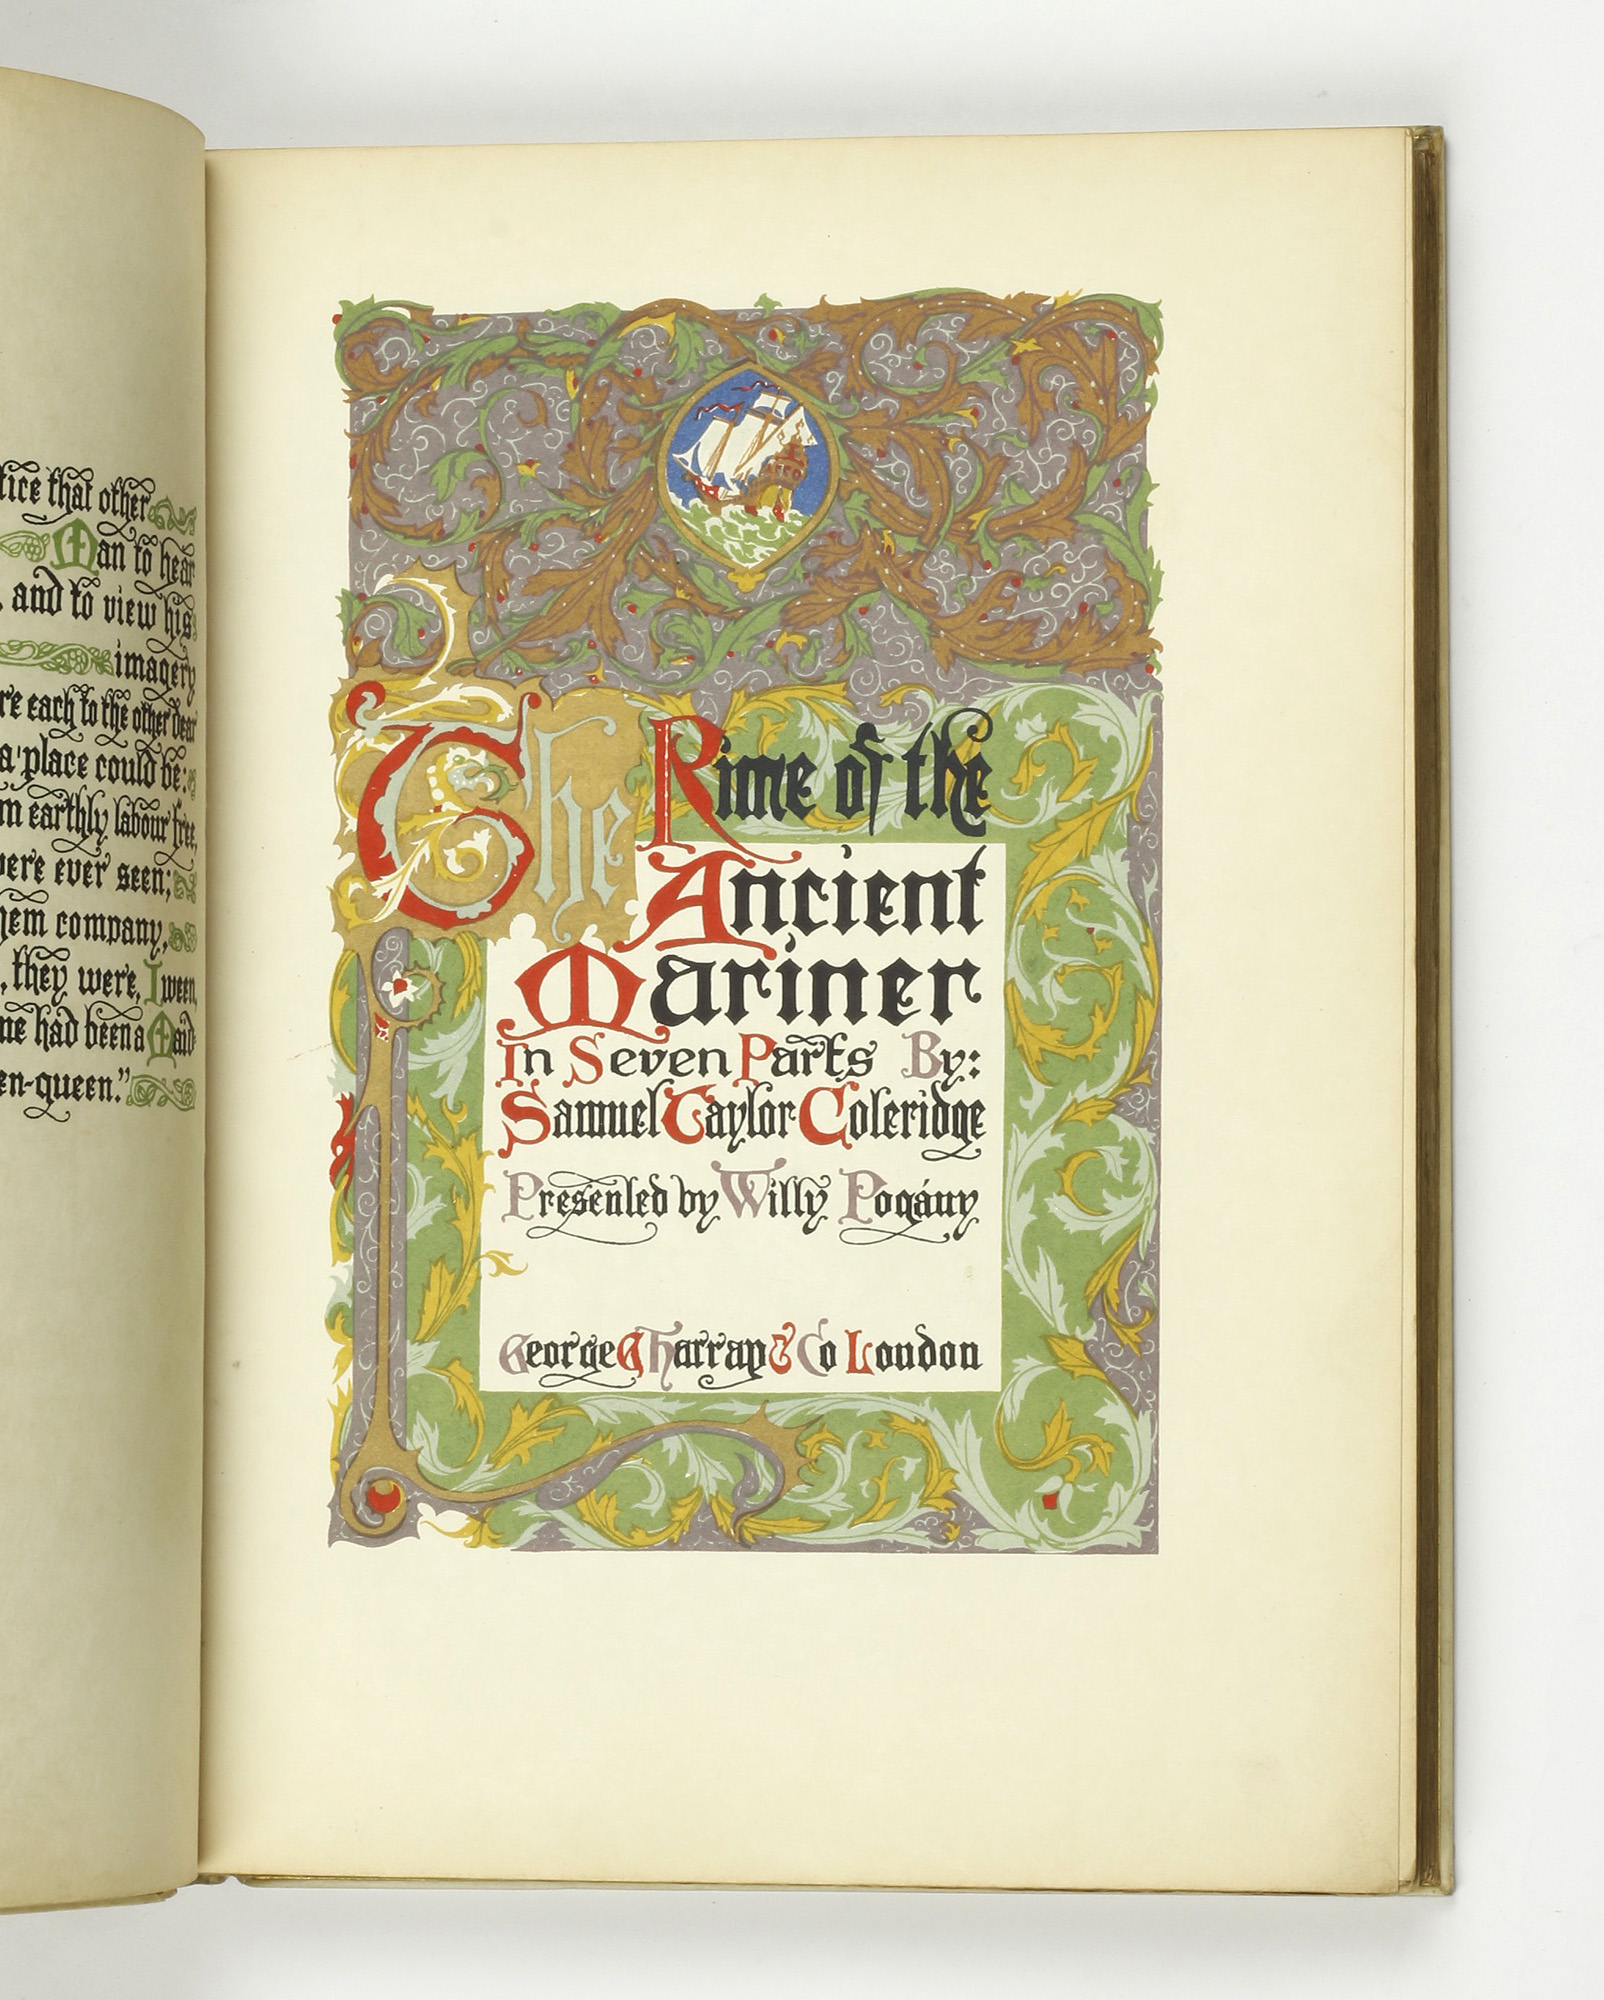 tice that other
Man to hear
, and to view his
imagery
re each to the other dear
a place could be:
m earthly labour free,
were ever seen;
hem company,
, they were, I ween,
ne had been a Maid-
en-queen."
The Rime of the
Ancient
Mariner
In Seven Parts By:
Samuel Taylor Coleridge
Presented by Willy Pogány
George G Harrap & Co London